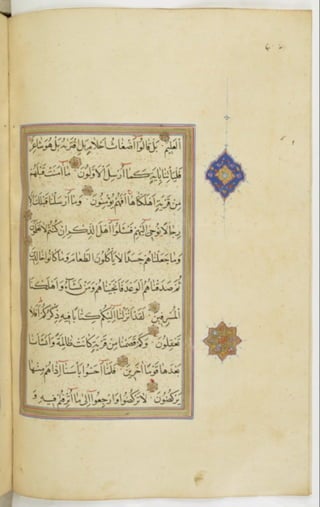 الْعَلِيمُ بَلْ قَالُوا أَضْغَاثُ أَحْلَامٍ بَلِ افْتَرَيهُ بَلْ هُوَ شَاعِرٌ
فَلْيَأْتِنَا بِآيَةٍ كَمَا أُرْسِلَ الْأَوَّلُونَ مَا آمَنَتْ قَبْلَهُمْ
مِنْ قَرْيَةٍ أَهْلَكْنَاهَا أَفَهُمْ يُؤْمِنُونَ وَمَا أَرْسَلْنَا قَبْلَكَ إِلَّا
رِجَالًا نُوحِي إِلَيْهِمْ فَسْئَلُوا أَهْلَ الذِّكْرِ إِنْ كُنْتُمْ لَا تَعْلَمُونَ
وَمَا جَعَلْنَاهُمْ جَسَدًا لَا يَأْكُلُونَ الطَّعَامَ وَمَا كَانُوا خَالِدِينَ
ثُمَّ صَدَقْنَاهُمُ الْوَعْدَ فَأَنْجَيْنَاهُمْ وَمَنْ نَشَاءُ وَأَهْلَكْنَا
الْمُسْرِفِينَ لَقَدْ أَنْزَلْنَا إِلَيْكُمْ كِتَابًا فِيهِ ذِكْرُكُمْ أَفَلَا
تَعْقِلُونَ وَكَمْ قَصَمْنَا مِنْ قَرْيَةٍ كَانَتْ ظَالِمَةً وَأَنْشَأْنَا
بَعْدَهَا قَوْمًا آخَرِينَ فَلَمَّا أَحَسُّوا بَأْسَنَا إِذَا هُمْ مِنْهَا
يَرْكُضُونَ لَا تَرْكُضُوا وَارْجِعُوا إِلَى مَا أُتْرِفْتُمْ فِيهِ وَ